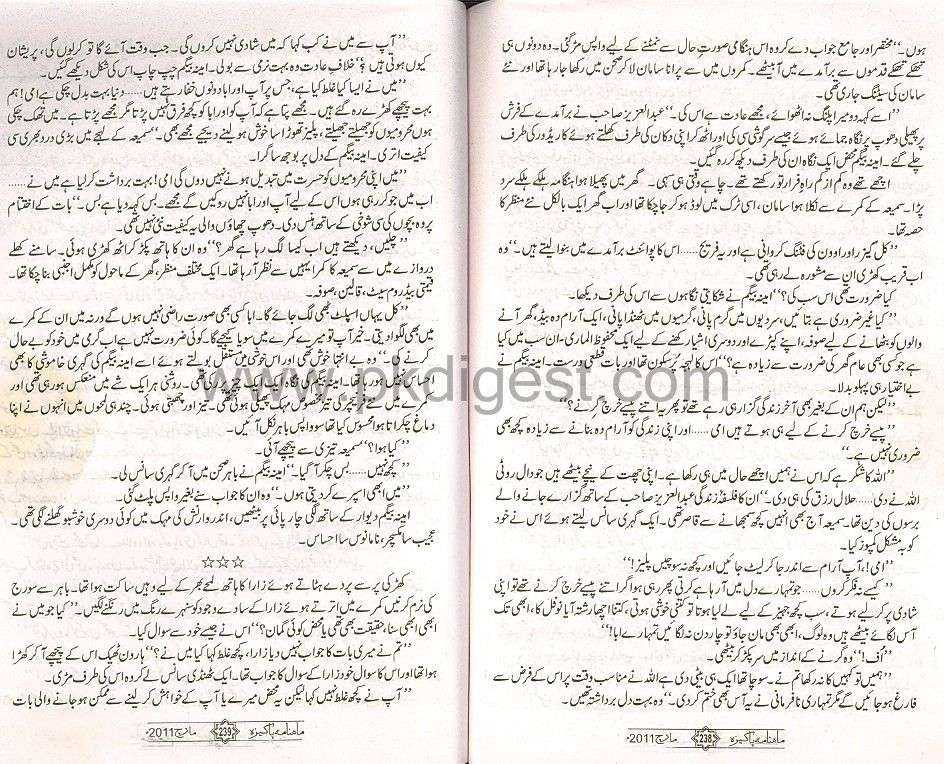 ہوں۔“ مختصر اور جامع جواب دے کر وہ اس ہنگامی صورتِ حال سے نمٹنے کے لیے واپس مڑ گئی۔ وہ دونوں ہی
تھکے تھکے قدموں سے برآمدے میں آ بیٹھے۔ کمروں میں سے پرانا سامان لا کر صحن میں رکھا جا رہا تھا اور نئے
سامان کی سیٹنگ جاری تھی۔
”اسے کہہ دو میرا پلنگ نہ اٹھوائے، مجھے عادت ہے اس کی۔“ عبدالعزیز صاحب نے برآمدے کے فرش
پر پھیلی دھوپ پر نگاہ جمائے ہوئے جیسے سرگوشی کی اور اٹھ کر اپنی دکان کی طرف کھلتے ہوئے کاریڈور کی طرف
چلے گئے۔ امینہ بیگم محض ایک نگاہ ان کی طرف دیکھ کر رہ گئیں۔
اچھے تھے وہ کم از کم راہِ فرار تو رکھتے تھے۔ چاہے وقتی ہی سہی۔ گھر میں پھیلا ہوا ہنگامہ ہلکے ہلکے سرد
پڑا۔ سمیعہ کے کمرے سے نکلا ہوا سامان، اسی ٹرک میں لوڈ ہو کر جا چکا تھا اور اب گھر ایک بالکل نئے منظر کا
حصہ تھا۔
”کل گیزر اور اوون کی فٹنگ کروانی ہے اور یہ فریج...... اس کا پوائنٹ برآمدے میں بنوا لیتے ہیں۔“ وہ
اب قریب کھڑی ان سے مشورہ لے رہی تھی۔
”کیا ضرورت تھی اس سب کی؟“ امینہ بیگم نے شکایتی نگاہوں سے اس کی طرف دیکھا۔
”کیا غیر ضروری ہے بتائیں، سردیوں میں گرم پانی، گرمیوں میں ٹھنڈا پانی، ایک آرام دہ بیڈ، گھر آنے
والوں کو بٹھانے کے لیے صوفہ، اپنے کپڑے اور دوسری اشیا رکھنے کے لیے ایک محفوظ الماری۔ ان سب میں کیا
ہے جو کسی بھی عام گھر کی ضرورت سے زیادہ ہے؟“ اس کا لہجہ پُرسکون تھا اور بات قطعی درست۔ امینہ بیگم نے
بے اختیار ہی پہلو بدلا۔
”لیکن ہم ان کے بغیر بھی آخر زندگی گزار ہی رہے تھے تو پھر یہ اتنے پیسے خرچ کرنے؟“
”پیسے خرچ کرنے کے لیے ہی ہوتے ہیں امی...... اور اپنی زندگی کو آرام دہ بنانے سے زیادہ کچھ بھی
ضروری نہیں ہے۔“
”اللہ کا شکر ہے کہ اس نے ہمیں اچھے حال میں ہی رکھا ہے۔ اپنی چھت کے نیچے بیٹھے ہیں جو دال روٹی
اللہ نے دی...... حلال رزق کی ہی دی۔“ ان کا فلسفۂ زندگی عبدالعزیز صاحب کے ساتھ گزارے جانے والے
برسوں کی دین تھا۔ سمیعہ آج بھی انہیں کچھ سمجھانے سے قاصر تھی۔ ایک گہری سانس لیتے ہوئے اس نے خود
کو بہ مشکل کمپوز کیا۔
”امی!، آپ آرام سے اندر جا کر لیٹ جائیں اور کچھ نہ سوچیں پلیز!“
”کیسے نہ فکر کروں...... جو تمہارے دل میں آ رہا ہے کرتی پھر رہی ہو اگر اتنے پیسے خرچ کرنے تھے تو اپنی
شادی پر کر لیے ہوتے، سب کچھ جہیز کے لیے لے لیا ہوتا تو کتنی خوشی ہوتی، کتنا اچھا رشتہ آیا نوفل کا، ابھی تک
آس لگائے بیٹھے ہیں وہ لوگ، ابھی بھی مان جاؤ تو چار دن نہ لگائیں تمہارے ابا!“
”اُف!“ وہ گرنے کے انداز میں سر پکڑ کر بیٹھی۔
”ہمیں تو کہیں کا نہ رکھا تم نے۔ سوچا تھا ایک ہی بیٹی دی ہے اللہ نے مناسب وقت پر اس کے فرض سے
فارغ ہو جائیں گے مگر تمہاری نافرمانی نے یہ آس بھی ختم کر دی۔“ وہ بہت دل برداشتہ تھیں۔
ماہنامہ پاکیزہ 238 مارچ 2011ء
”آپ سے میں نے کب کہا کہ میں شادی نہیں کروں گی۔ جب وقت آئے گا تو کر لوں گی، پریشان
کیوں ہوتی ہیں؟“ خلافِ عادت وہ بہت نرمی سے بولی۔ امینہ بیگم چپ چاپ اس کی شکل دیکھے گئیں۔
”میں نے ایسا کیا غلط کیا ہے، جس پر آپ اور ابا دونوں خفا رہتے ہیں...... دنیا بہت بدل چکی ہے امی! ہم
بہت پیچھے کھڑے رہ گئے ہیں۔ مجھے پتا ہے کہ آپ کو اور ابا کو کچھ فرق نہیں پڑتا مگر مجھے پڑتا ہے۔ میں تھک چکی
ہوں محرومیوں کو جھیلتے جھیلتے، پلیز تھوڑا سا خوش ہو لینے دیجیے مجھے بھی۔“ سمیعہ کے لہجے میں بڑی درد بھری سی
کیفیت اتری۔ امینہ بیگم کے دل پر بوجھ سا گرا۔
”میں اپنی محرومیوں کو حسرت میں تبدیل ہونے نہیں دوں گی امی! بہت برداشت کر لیا ہے میں نے......
اب میں جو کر رہی ہوں اس کے لیے آپ اور ابا نہیں روکیں گے مجھے۔ بس کہہ دیا ہے بس۔“ بات کے اختتام
پر وہ بچوں کی سی شوخی کے ساتھ ہنس دی۔ دھوپ چھاؤں والی یہ کیفیت نئی نہیں تھی۔
”چلیں، دیکھتے ہیں اب کیسا لگ رہا ہے گھر؟“ وہ ان کا ہاتھ پکڑ کر اٹھ کھڑی ہوئی۔ سامنے کھلے
دروازے میں سے سمیعہ کا کمرا یہیں سے نظر آ رہا تھا۔ ایک مختلف منظر، گھر کے ماحول کو مکمل اجنبی بنا چکا تھا۔
قیمتی بیڈ روم سیٹ، قالین، صوفہ۔
”کل یہاں اسپلٹ بھی لگ جائے گا۔ ابا کسی بھی صورت راضی نہیں ہوں گے ورنہ میں ان کے کمرے
میں بھی لگوا دیتی۔ خیر آپ تو میرے کمرے میں سویا کیجیے گا۔ کوئی ضرورت نہیں ہے اب گرمی میں خود کو بے حال
کرنے کی۔“ وہ بے انتہا خوش تھی اور اس خوشی میں مستقل بولتے ہوئے اسے امینہ بیگم کی گہری خاموشی کا بھی
احساس نہیں ہو رہا تھا۔ امینہ بیگم کی نگاہ ایک ایک چیز پر تھی۔ روشنی ہر ایک شے میں منعکس ہو رہی تھی اور
کمرے میں نئے فرنیچر کی تیز مخصوص مہک پھیلی ہوئی تھی۔ تیز اور چبھتی ہوئی۔ چند ہی لمحوں میں انہوں نے اپنا
دماغ چکراتا ہوا محسوس کیا تھا سو واپس باہر نکل آئیں۔
”کیا ہوا؟“ سمیعہ تیزی سے پیچھے آئی۔
”کچھ نہیں...... بس چکر آ گیا۔“ امینہ بیگم نے باہر صحن میں آ کر گہری سانس لی۔
”میں ابھی اسپرے کر دیتی ہوں۔“ وہ ان کا جواب سنے بغیر واپس پلٹ گئی۔
امینہ بیگم دیوار کے ساتھ لگی چارپائی پر بیٹھیں، اندر وارنش کی مہک میں کوئی دوسری خوشبو گھلنے لگی تھی۔
عجیب سا مکسچر، نامانوس سا احساس۔
☆☆☆
کھڑکی پر سے پردے ہٹاتے ہوئے زارا کا ہاتھ لمحے بھر کے لیے وہیں ساکت ہوا تھا۔ باہر سے سورج
کی نرم کرنیں کمرے میں اترتے ہوئے زارا کے سادے وجود کو سنہرے رنگ میں رنگنے لگیں۔ ”کیا جو میں نے
ابھی ابھی سنا، حقیقت بھی تھی یا محض کوئی گمان؟“ اس نے جیسے خود سے سوال کیا۔
”تم نے میری بات کا جواب نہیں دیا زارا، کچھ غلط کہا کیا میں نے؟“ ہارون ٹھیک اس کے پیچھے آ کر کھڑا
ہوا تھا اور اس کا سوال خود زارا کے سوال کا جواب تھا۔ ایک ٹھنڈی سانس لے کر وہ اس کی طرف مڑی۔
”آپ نے کچھ غلط نہیں کہا لیکن یہ محض میرے یا آپ کے خواہش کر لینے سے ممکن ہو جانے والی بات
ماہنامہ پاکیزہ 239 مارچ 2011ء
www.pkdigest.com